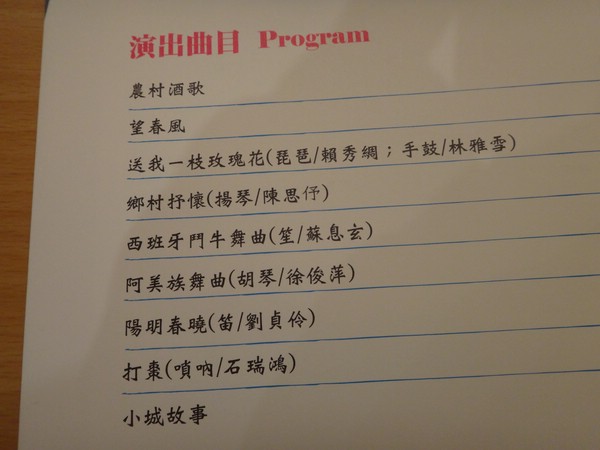 演出曲目 Program
農村酒歌
望春風
送我一枝玫瑰花(琵琶/賴秀綢；手鼓/林雅雪)
鄉村抒懷(揚琴/陳思伃)
西班牙鬥牛舞曲(笙/蘇息玄)
阿美族舞曲(胡琴/徐俊萍)
陽明春曉(笛/劉貞伶)
打棗(嗩吶/石瑞鴻)
小城故事